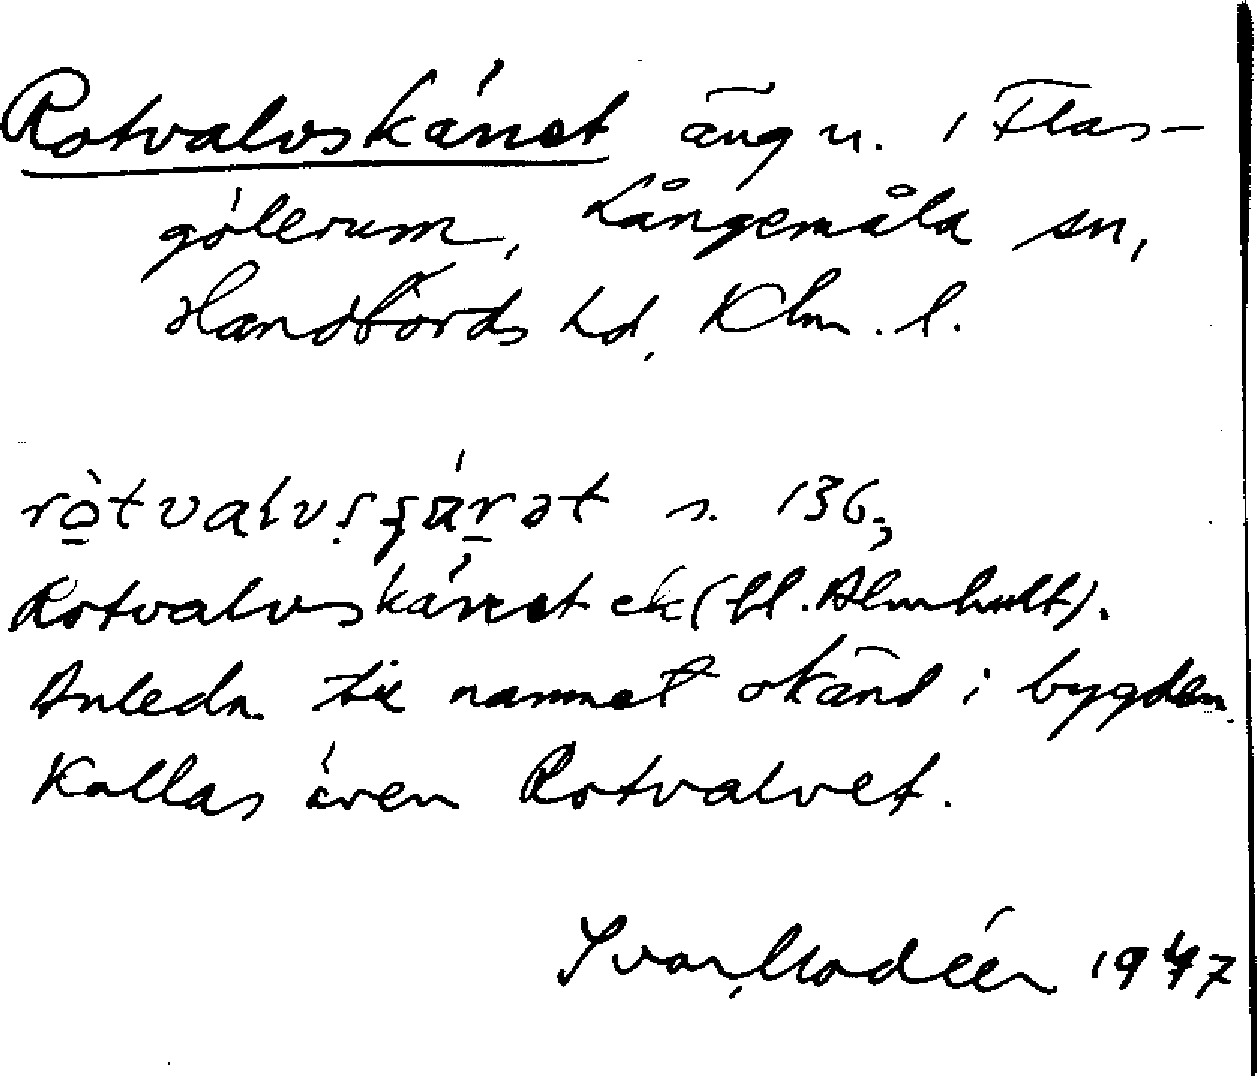 Rotvalvskärret äng n. i Flas-
gölerum, Långemåla sn,
Handbörds hd, Klm. l.
s. 136,
Rotvalvskärret ek (bl. Älmhult).
Anledn. till namnet okänd i bygden.
Kallas även Rotvalvet.
Ivar Modéer 1947